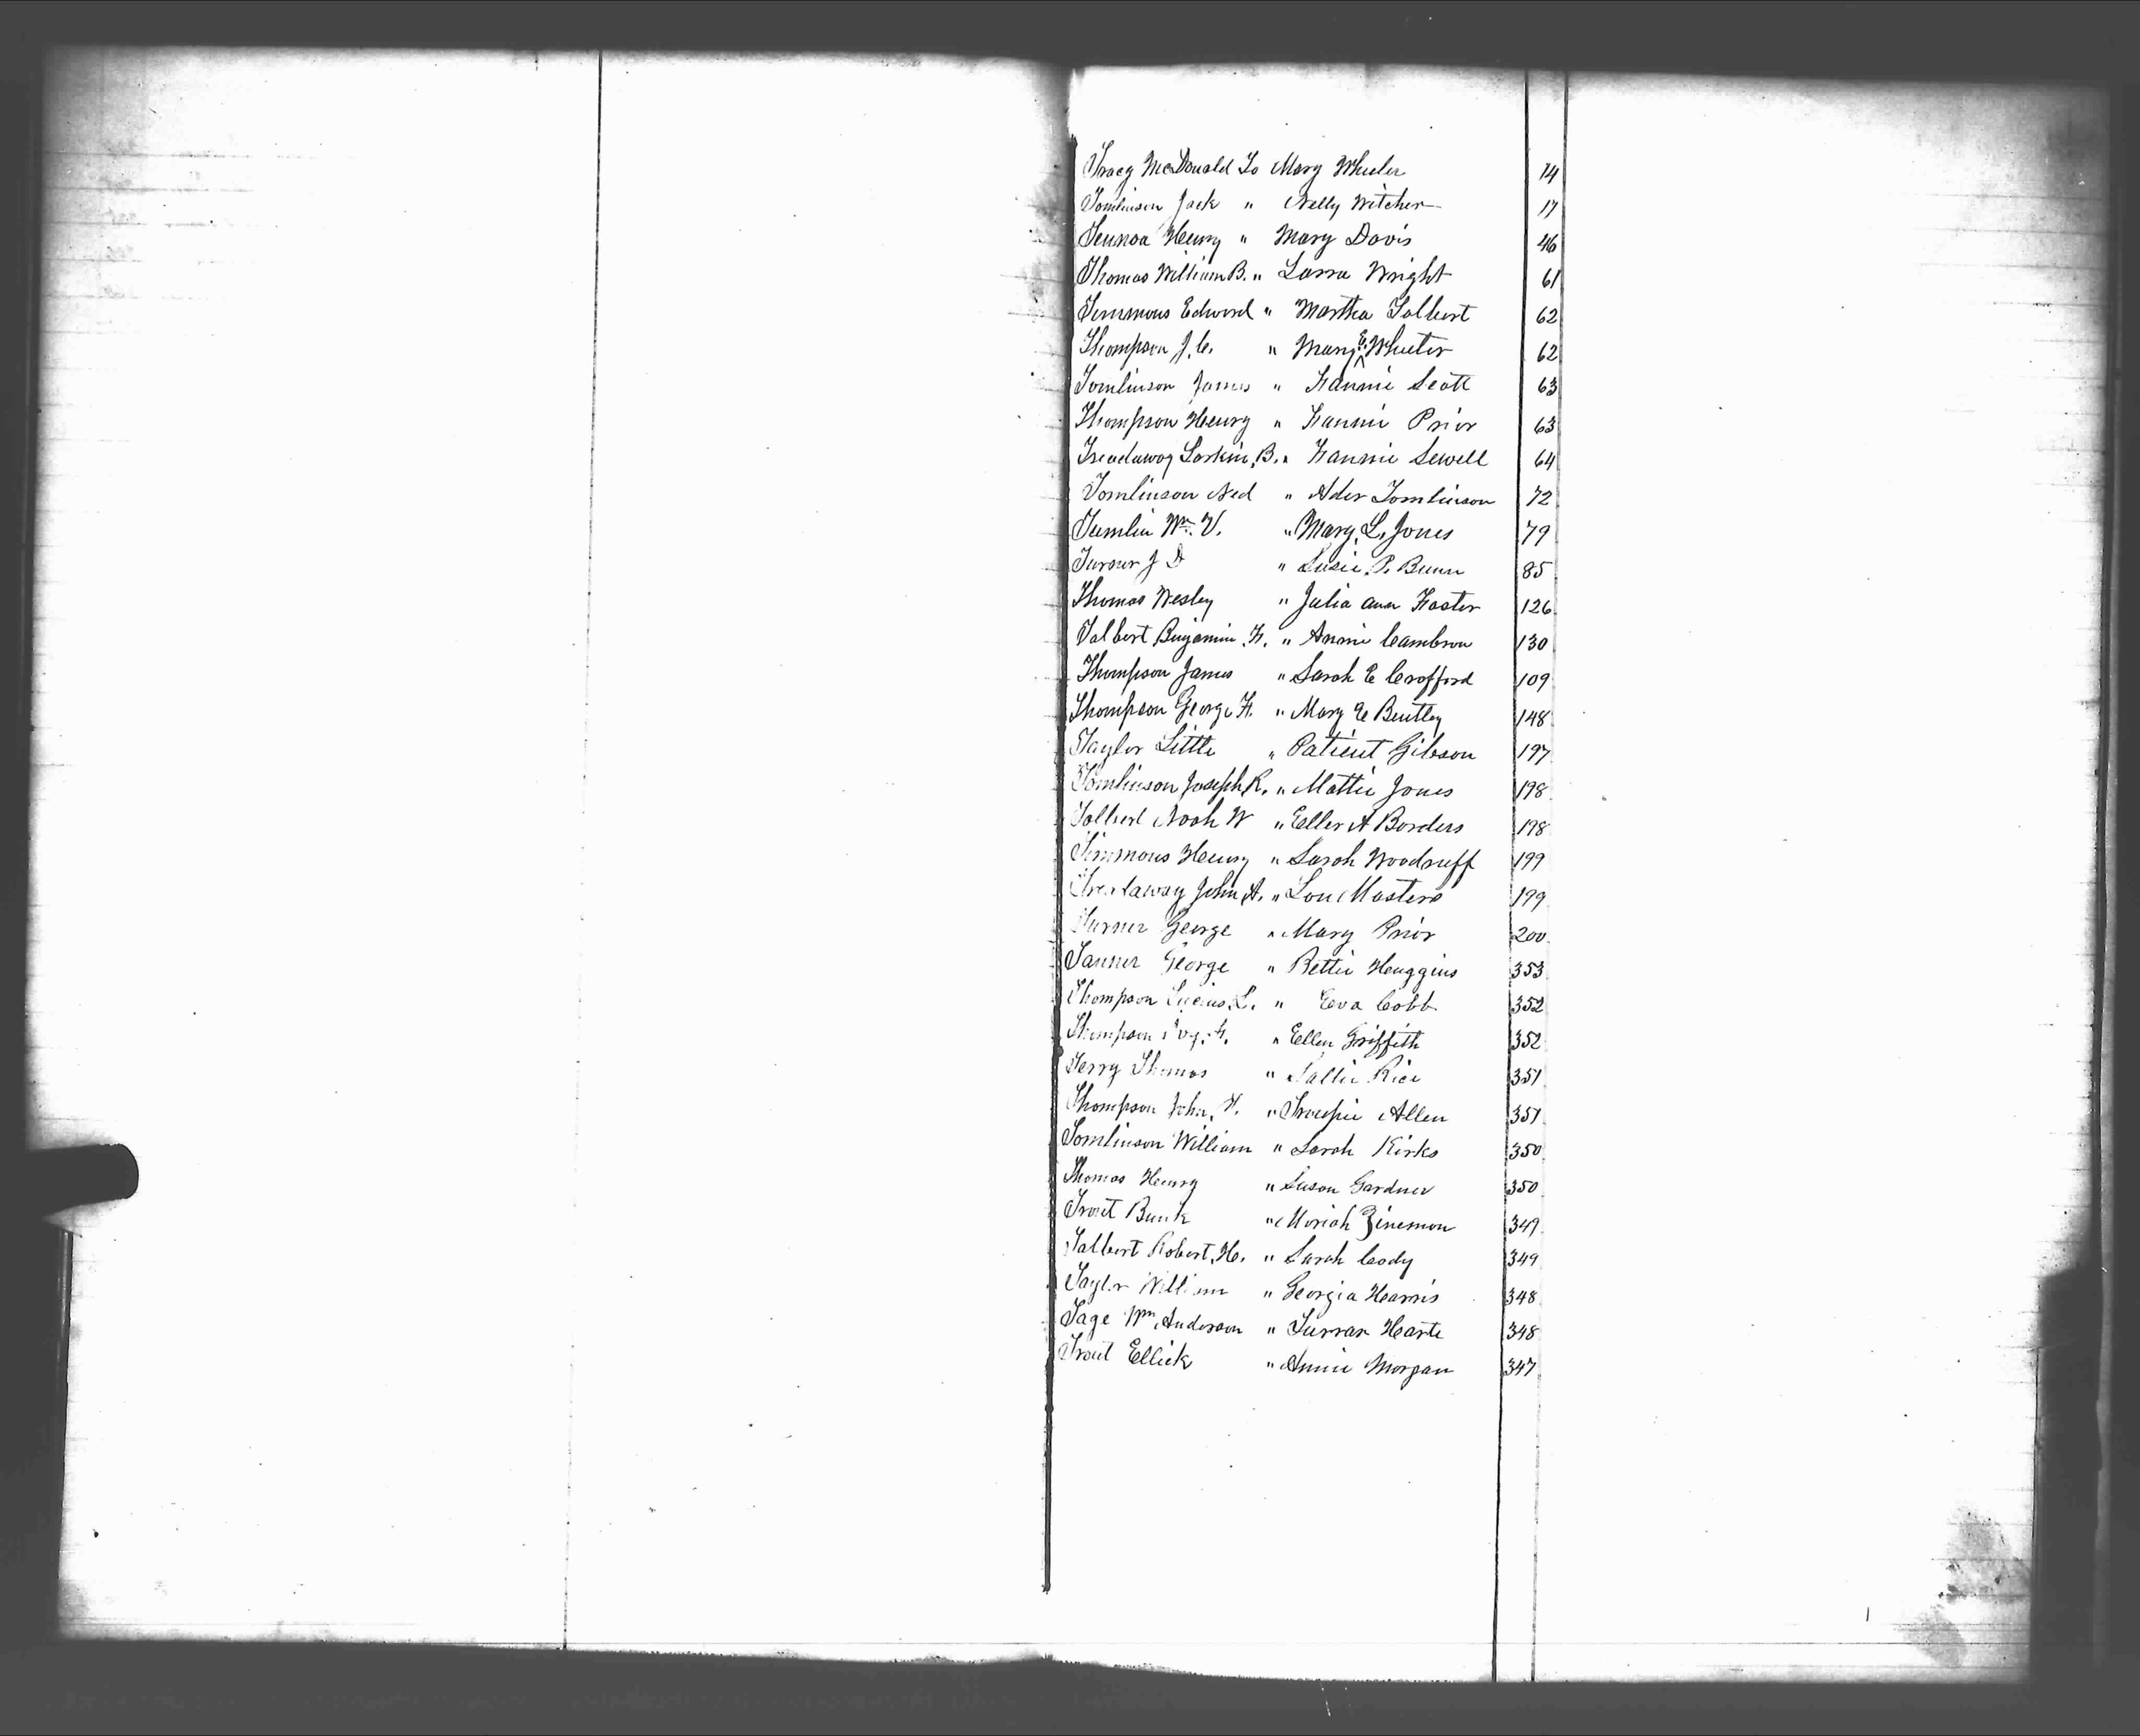 Tracy McDonald To Mary Wheeler 14
Tomlinson Jack " Nelly Witcher 17
Henry " Mary Davis 46
Thomas William B. " Larra Wright 61
Timmons Edward " Martha Tolbert 62
Thompson J. C. " Mary E. Wheeler 62
Tomlinson James " Fannie Scott 63
Thompson Henry " Fannie Prior 63
Treadaway Larkin, B. " Fannie Sewell 64
Tomlinson Ned " Ader Tomlinson 72
Tumlin Wm. V. " Mary, L. Jones 79
Turner J D " Susie, P. Bunn 85
Thomas Wesley " Julia ann Foster 126
Talbert Benjamin. F. " Annie Cambron 130
Thompson James " Sarah E Crofford 109
Thompson George F. " Mary E Bentley 148
Taylor Little " Patient Gibson 197
Tomlinson Joseph R. " Mattie Jones 198
Tolbert Noah W " Eller A Borders 198
Timmons Henry " Sarah Woodruff 199
Treadaway John A. " Lou Masters 199
Turner George " Mary Prior 200
Tanner George " Bettie Huggins 353
Thompson Lucius, L. " Eva Cobb 352
Thompson F. " Ellen Griffith 352
Terry Thomas " Sallie Rice 351
Thompson John, " Allen 351
Tomlinson William " Sarah Kirks 350
Thomas Henry " Susan Gardner 350
Trout Bunk " Moriah Zinemon 349
Talbert Robert, H. " Sarah Cody 349
Taylor William " Georgia Harris 348
Tage Wm, Anderson " Harte 348
Trout Ellick " Annie Morgan 347